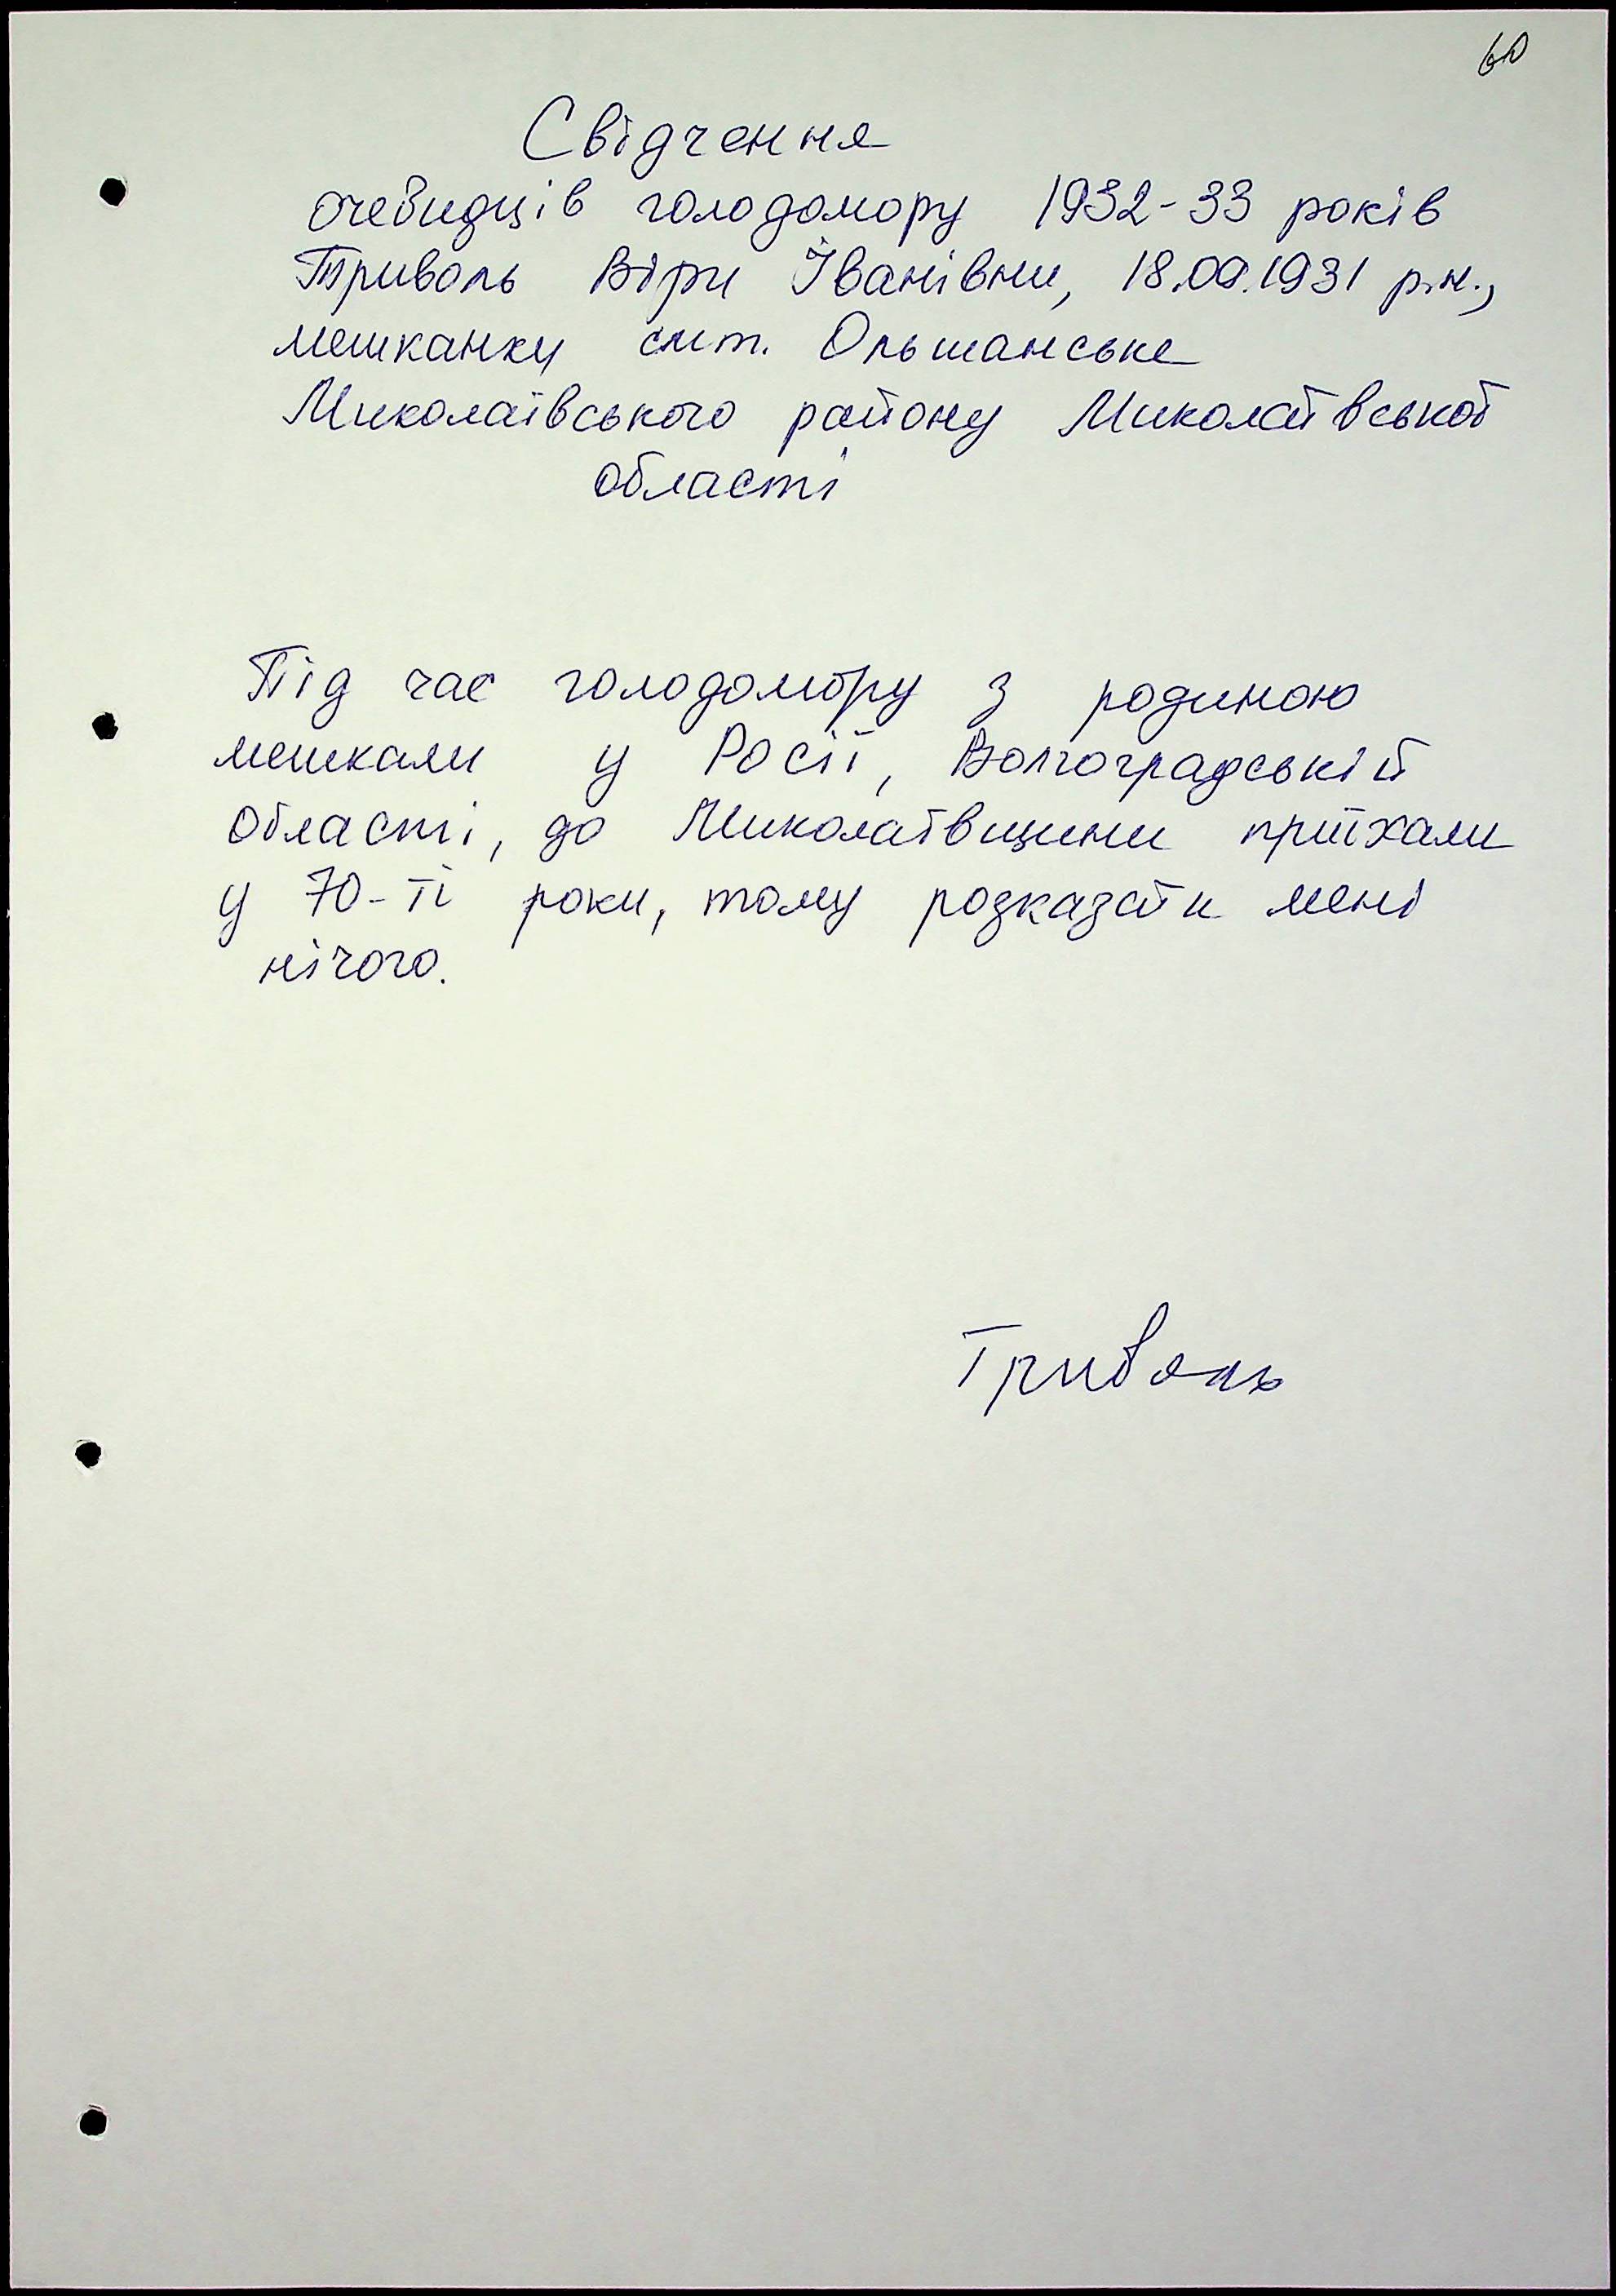 60
Свідчення
очевидців голодомору 1932-33 років
Триволь Віри Іванівни, 18.09.1931 р.н.,
мешканки смт. Ольшанське
Миколаївського району Миколаївської
області
Під час голодомору з родиною
мешкали у Росії, Волгоградській
області, до Миколаївщини приїхали
у 70-ті роки, тому розказати мені
нічого.
Триволь